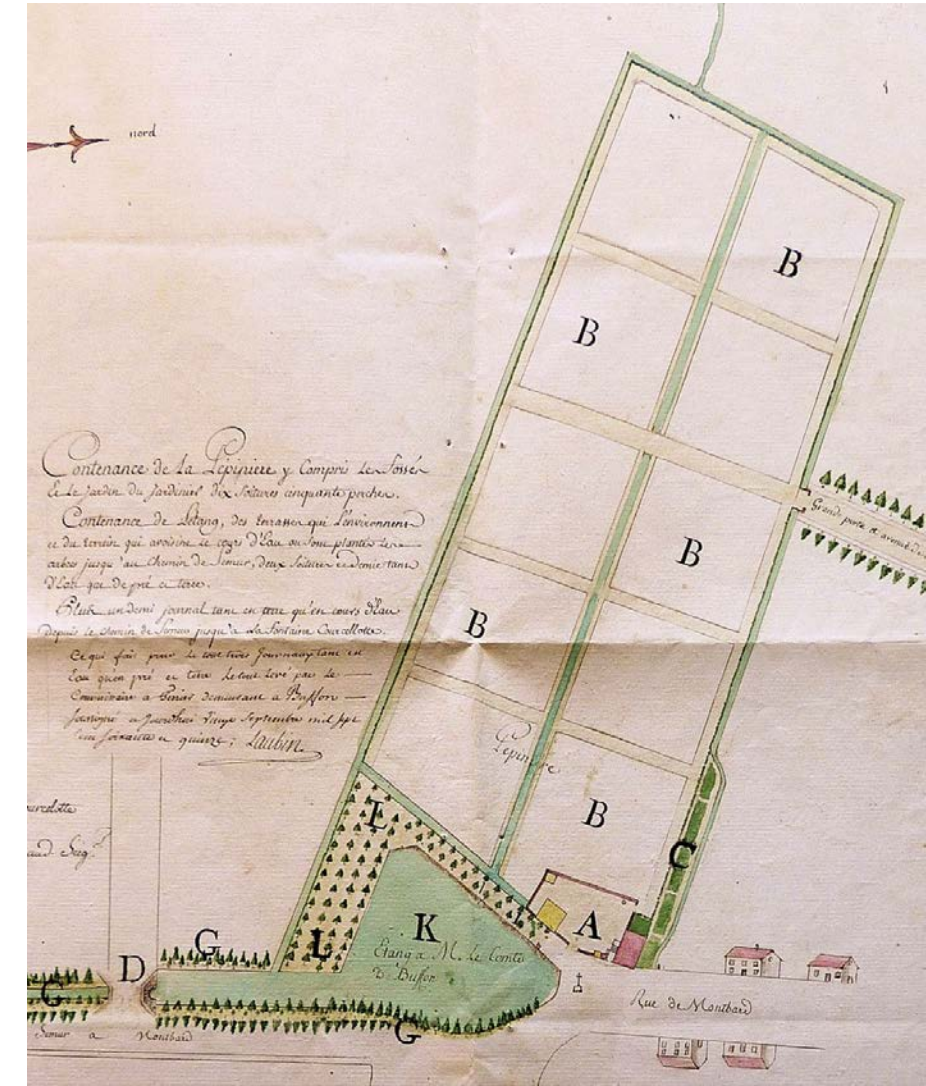 nord
B
B
Contenance de la Pépiniere y Compris les Fossés
Et le Jardin du Jardinier dix Soitures cinquante perches.
Contenance de Létang, des terrasses qui l'environnent
et du terrein qui avoisine le cours d'Eau ou sont plantés les
arbres jusqu'au Chemin de Semur, deux Soitures et demie tant
D'Eau que de pré et terre.
Plus un demi journal tant en terre qu'en cours d'Eau
Depuis le chemin de Semur jusqu'a La Fontaine Courcellotte.
Ce qui fait pour le tout trois Journaux tant en
Eau qu'en pré et terre le tout levé par le
demeurant a Buffon
Septembre mil sept
cent soixante et quinze; Laubin
Grande porte et avenue de
B
B
Pépiniere
B
C
L
L
K
A
Etang a M. le Comte
de Buffon
G
D
G
G
Rue de Montbard
Semur a Montbard